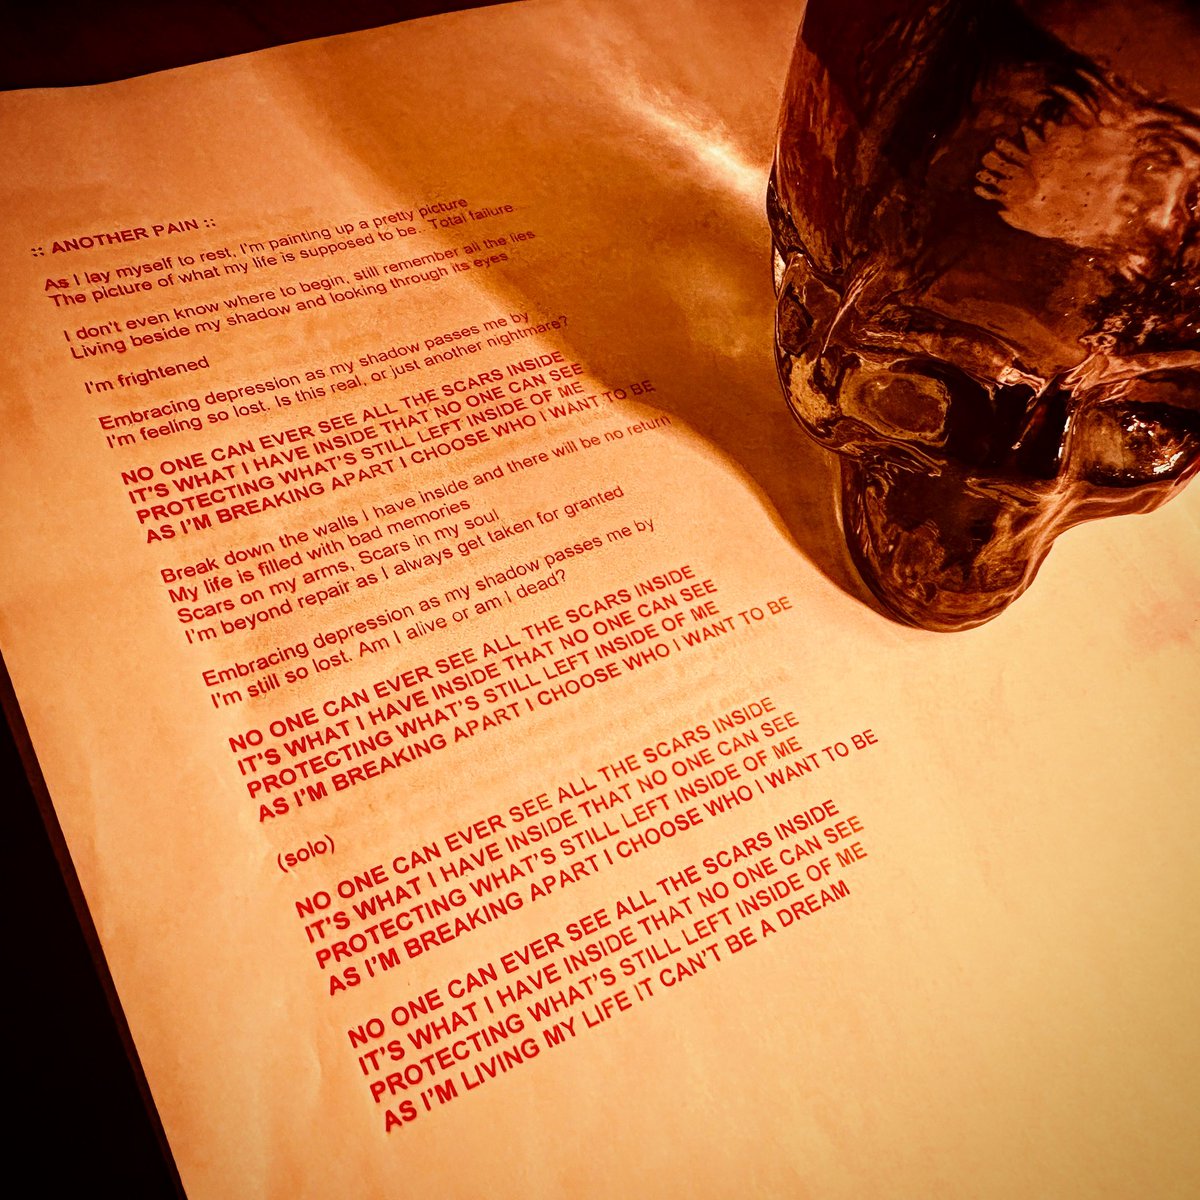 :: ANOTHER PAIN ::
As I lay myself to rest, I'm painting up a pretty picture
The picture of what my life is supposed to be. Total failure
I don't even know where to begin, still remember all the lies
Living beside my shadow and looking through its eyes
I'm frightened
Embracing depression as my shadow passes me by
I'm feeling so lost. Is this real, or just another nightmare?
NO ONE CAN EVER SEE ALL THE SCARS INSIDE
IT'S WHAT I HAVE INSIDE THAT NO ONE CAN SEE
PROTECTING WHAT'S STILL LEFT INSIDE OF ME
AS I'M BREAKING APART I CHOOSE WHO I WANT TO BE
Break down the walls I have inside and there will be no return
My life is filled with bad memories
Scars on my arms, Scars in my soul
I'm beyond repair as I always get taken for granted
Embracing depression as my shadow passes me by
I'm still so lost. Am I alive or am I dead?
NO ONE CAN EVER SEE ALL THE SCARS INSIDE
IT'S WHAT I HAVE INSIDE THAT NO ONE CAN SEE
PROTECTING WHAT'S STILL LEFT INSIDE OF ME
AS I'M BREAKING APART I CHOOSE WHO I WANT TO BE
(solo)
NO ONE CAN EVER SEE ALL THE SCARS INSIDE
IT'S WHAT I HAVE INSIDE THAT NO ONE CAN SEE
PROTECTING WHAT'S STILL LEFT INSIDE OF ME
AS I'M BREAKING APART I CHOOSE WHO I WANT TO BE
NO ONE CAN EVER SEE ALL THE SCARS INSIDE
IT'S WHAT I HAVE INSIDE THAT NO ONE CAN SEE
PROTECTING WHAT'S STILL LEFT INSIDE OF ME
AS I'M LIVING MY LIFE IT CAN'T BE A DREAM